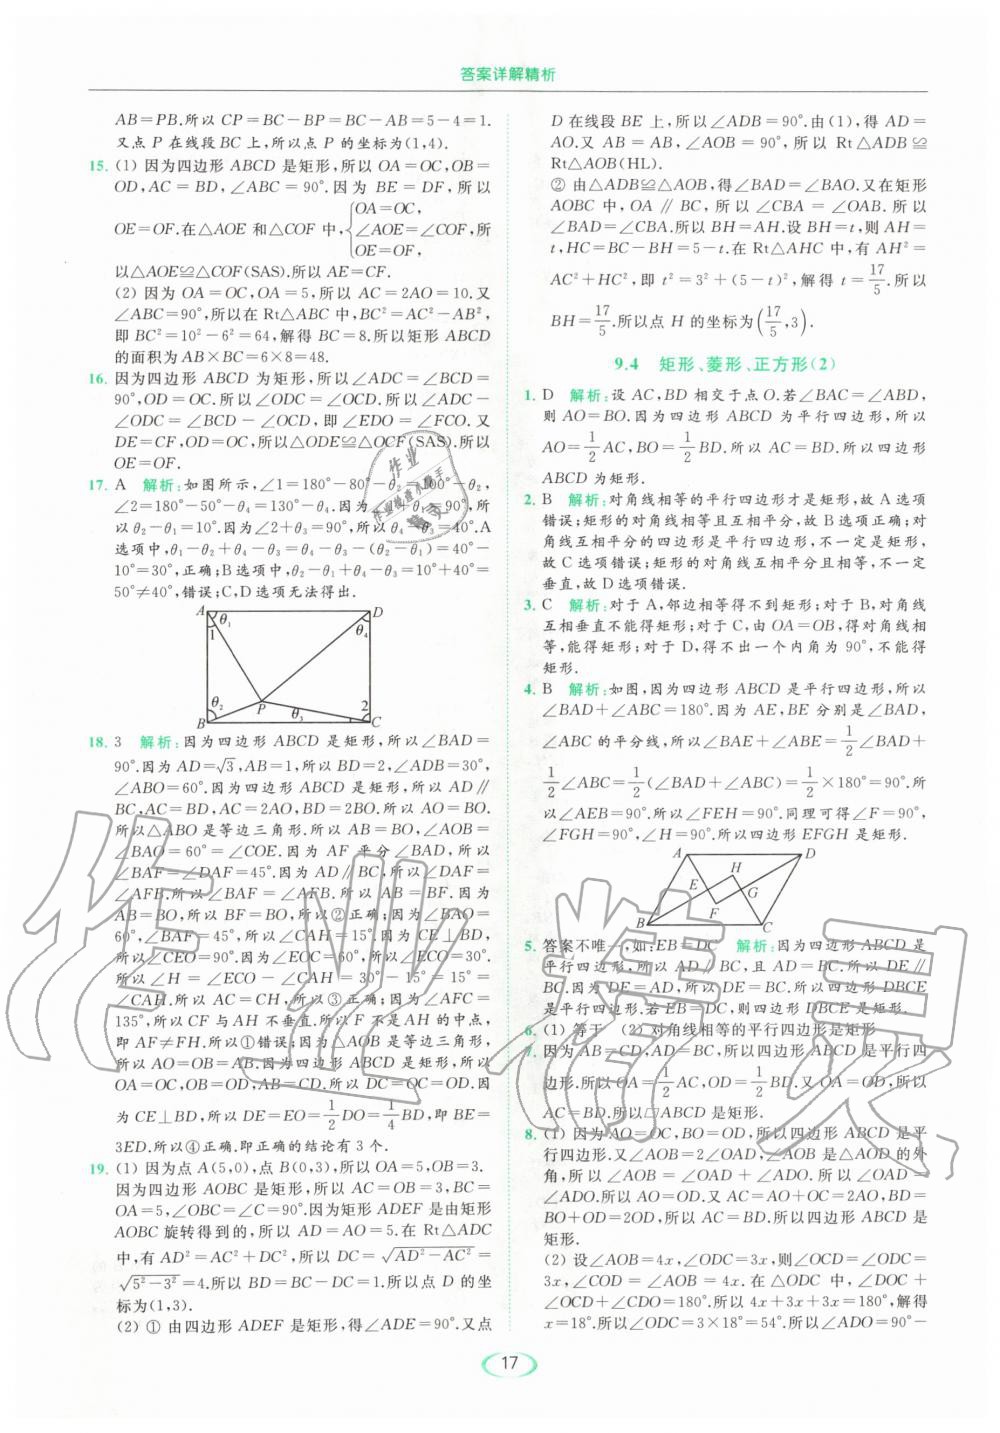 答案详解精析
AB=PB.所以 CP=BC-BP=BC-AB=5-4=1.
又点 P 在线段 BC 上,所以点 P 的坐标为(1,4).
15. (1) 因为四边形 ABCD 是矩形,所以 OA=OC,OB=
OD,AC=BD,∠ABC=90°.因为 BE=DF,所以
OE=OF.在△AOE 和△COF 中,{OA=OC,
∠AOE=∠COF,所
OE=OF.
以△AOE≌△COF(SAS).所以 AE=CF.
(2) 因为 OA=OC,OA=5,所以 AC=2AO=10.又
∠ABC=90°,所以在 Rt△ABC 中,BC²=AC²-AB²,
即 BC²=10²-6²=64,解得 BC=8.所以矩形 ABCD
的面积为 AB×BC=6×8=48.
16. 因为四边形 ABCD 为矩形,所以∠ADC=∠BCD=
90°,OD=OC.所以∠ODC=∠OCD.所以∠ADC-
∠ODC=∠BCD-∠OCD,即∠EDO=∠FCO.又
DE=CF,OD=OC,所以△ODE≌△OCF(SAS).所以
OE=OF.
17. A 解析:如图所示,∠1=180°-80°-θ₂=100°-θ₂,
∠2=180°-50°-θ₄=130°-θ₄.因为∠1+θ₁=90°,所
以θ₂-θ₁=10°.因为∠2+θ₃=90°,所以θ₄-θ₃=40°.A
选项中,θ₁-θ₂+θ₄-θ₃=θ₄-θ₃-(θ₂-θ₁)=40°-
10°=30°,正确;B选项中,θ₂-θ₁+θ₄-θ₃=10°+40°=
50°≠40°,错误;C,D选项无法得出.
A θ₁ D
1 θ₄
θ₂ P θ₃ 2
B C
18. 3 解析:因为四边形 ABCD 是矩形,所以∠BAD=
90°.因为 AD=√3,AB=1,所以 BD=2,∠ADB=30°,
∠ABO=60°.因为四边形 ABCD 是矩形,所以 AD∥
BC,AC=BD,AC=2AO,BD=2BO.所以 AO=BO.
所以△ABO 是等边三角形.所以 AB=BO,∠AOB=
∠BAO=60°=∠COE.因为 AF 平分∠BAD,所以
∠BAF=∠DAF=45°.因为 AD∥BC,所以∠DAF=
∠AFB.所以∠BAF=∠AFB.所以 AB=BF.因为
AB=BO,所以 BF=BO,所以②正确;因为∠BAO=
60°,∠BAF=45°,所以∠CAH=15°.因为 CE⊥BD,
所以∠CEO=90°.因为∠EOC=60°,所以∠ECO=30°.
所以∠H=∠ECO-∠CAH=30°-15°=15°=
∠CAH.所以 AC=CH,所以③正确;因为∠AFC=
135°,所以 CF 与 AH 不垂直.所以 F 不是AH 的中点,
即 AF≠FH.所以①错误;因为△AOB 是等边三角形,
所以 AO=OB=AB.因为四边形 ABCD 是矩形,所以
OA=OC,OB=OD,AB=CD.所以 DC=OC=OD.因
为 CE⊥BD,所以 DE=EO=1/2DO=1/4BD,即 BE=
3ED.所以④正确.即正确的结论有 3 个.
19. (1) 因为点 A(5,0),点 B(0,3),所以 OA=5,OB=3.
因为四边形 AOBC 是矩形,所以 AC=OB=3,BC=
OA=5,∠OBC=∠C=90°.因为矩形 ADEF 是由矩形
AOBC 旋转得到的,所以 AD=AO=5.在 Rt△ADC
中,有 AD²=AC²+DC²,所以 DC=√(AD²-AC²)=
√(5²-3²)=4.所以 BD=BC-DC=1.所以点 D 的坐
标为(1,3).
(2) ① 由四边形 ADEF 是矩形,得∠ADE=90°.又点
D 在线段 BE 上,所以∠ADB=90°.由(1),得 AD=
AO.又 AB=AB,∠AOB=90°,所以 Rt△ADB≌
Rt△AOB(HL).
② 由△ADB≌△AOB,得∠BAD=∠BAO.又在矩形
AOBC 中,OA∥BC,所以∠CBA=∠OAB.所以
∠BAD=∠CBA.所以 BH=AH.设 BH=t,则 AH=
t,HC=BC-BH=5-t.在 Rt△AHC 中,有 AH²=
AC²+HC²,即 t²=3²+(5-t)²,解得 t=17/5.所以
BH=17/5.所以点 H 的坐标为(17/5,3).
9.4 矩形、菱形、正方形(2)
1. D 解析:设 AC,BD 相交于点 O.若∠BAC=∠ABD,
则 AO=BO.因为四边形 ABCD 为平行四边形,所以
AO=1/2AC,BO=1/2BD.所以 AC=BD.所以四边形
ABCD 为矩形.
2. B 解析:对角线相等的平行四边形才是矩形,故 A 选项
错误;矩形的对角线相等且互相平分,故 B 选项正确;对
角线互相平分的四边形是平行四边形,不一定是矩形,
故 C 选项错误;矩形的对角线互相平分且相等,不一定
垂直,故 D 选项错误.
3. C 解析:对于 A,邻边相等得不到矩形;对于 B,对角线
互相垂直不能得矩形;对于 C,由 OA=OB,得对角线相
等,能得矩形;对于 D,得不出一个内角为 90°,不能得
矩形.
4. B 解析:如图,因为四边形 ABCD 是平行四边形,所以
∠BAD+∠ABC=180°.因为 AE,BE 分别是∠BAD,
∠ABC 的平分线,所以∠BAE+∠ABE=1/2∠BAD+
1/2∠ABC=1/2(∠BAD+∠ABC)=1/2×180°=90°.所
以∠AEB=90°.所以∠FEH=90°.同理可得∠F=90°,
∠FGH=90°,∠H=90°.所以四边形 EFGH 是矩形.
A D
E H G
F
B C
5. 答案不唯一,如:EB=DC 解析:因为四边形 ABCD 是
平行四边形,所以 AD∥BC,且 AD=BC.所以 DE∥
BC.因为 DE=AD,所以 DE=BC.所以四边形 DBCE
是平行四边形.若 EB=DC,则四边形 DBCE 是矩形.
6. (1) 等于 (2) 对角线相等的平行四边形是矩形
7. 因为 AB=CD,AD=BC,所以四边形 ABCD 是平行四
边形.所以 OA=1/2AC,OD=1/2BD.又 OA=OD,所以
AC=BD.所以□ABCD 是矩形.
8. (1) 因为 AO=OC,BO=OD,所以四边形 ABCD 是平
行四边形.又∠AOB=2∠OAD,∠AOB 是△AOD 的外
角,所以∠AOB=∠OAD+∠ADO.所以∠OAD=
∠ADO.所以 AO=OD.又 AC=AO+OC=2AO,BD=
BO+OD=2OD,所以 AC=BD.所以四边形 ABCD 是
矩形.
(2) 设∠AOB=4x,∠ODC=3x,则∠ODC=∠OCD=
3x,∠COD=∠AOB=4x.在△ODC 中,∠DOC+
∠OCD+∠CDO=180°.所以 4x+3x+3x=180°,解得
x=18°.所以∠ODC=3×18°=54°.所以∠ADO=90°-
17
作业精灵